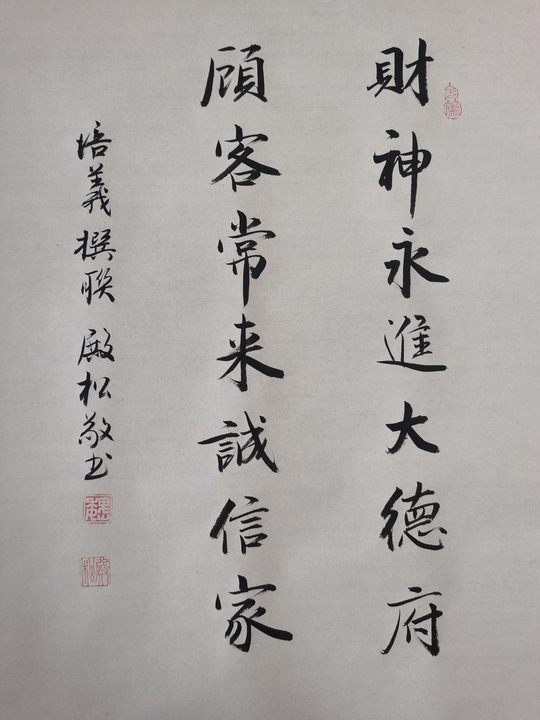 財神永進大德府
顧客常来誠信家
培義撰聯 殿松敬书